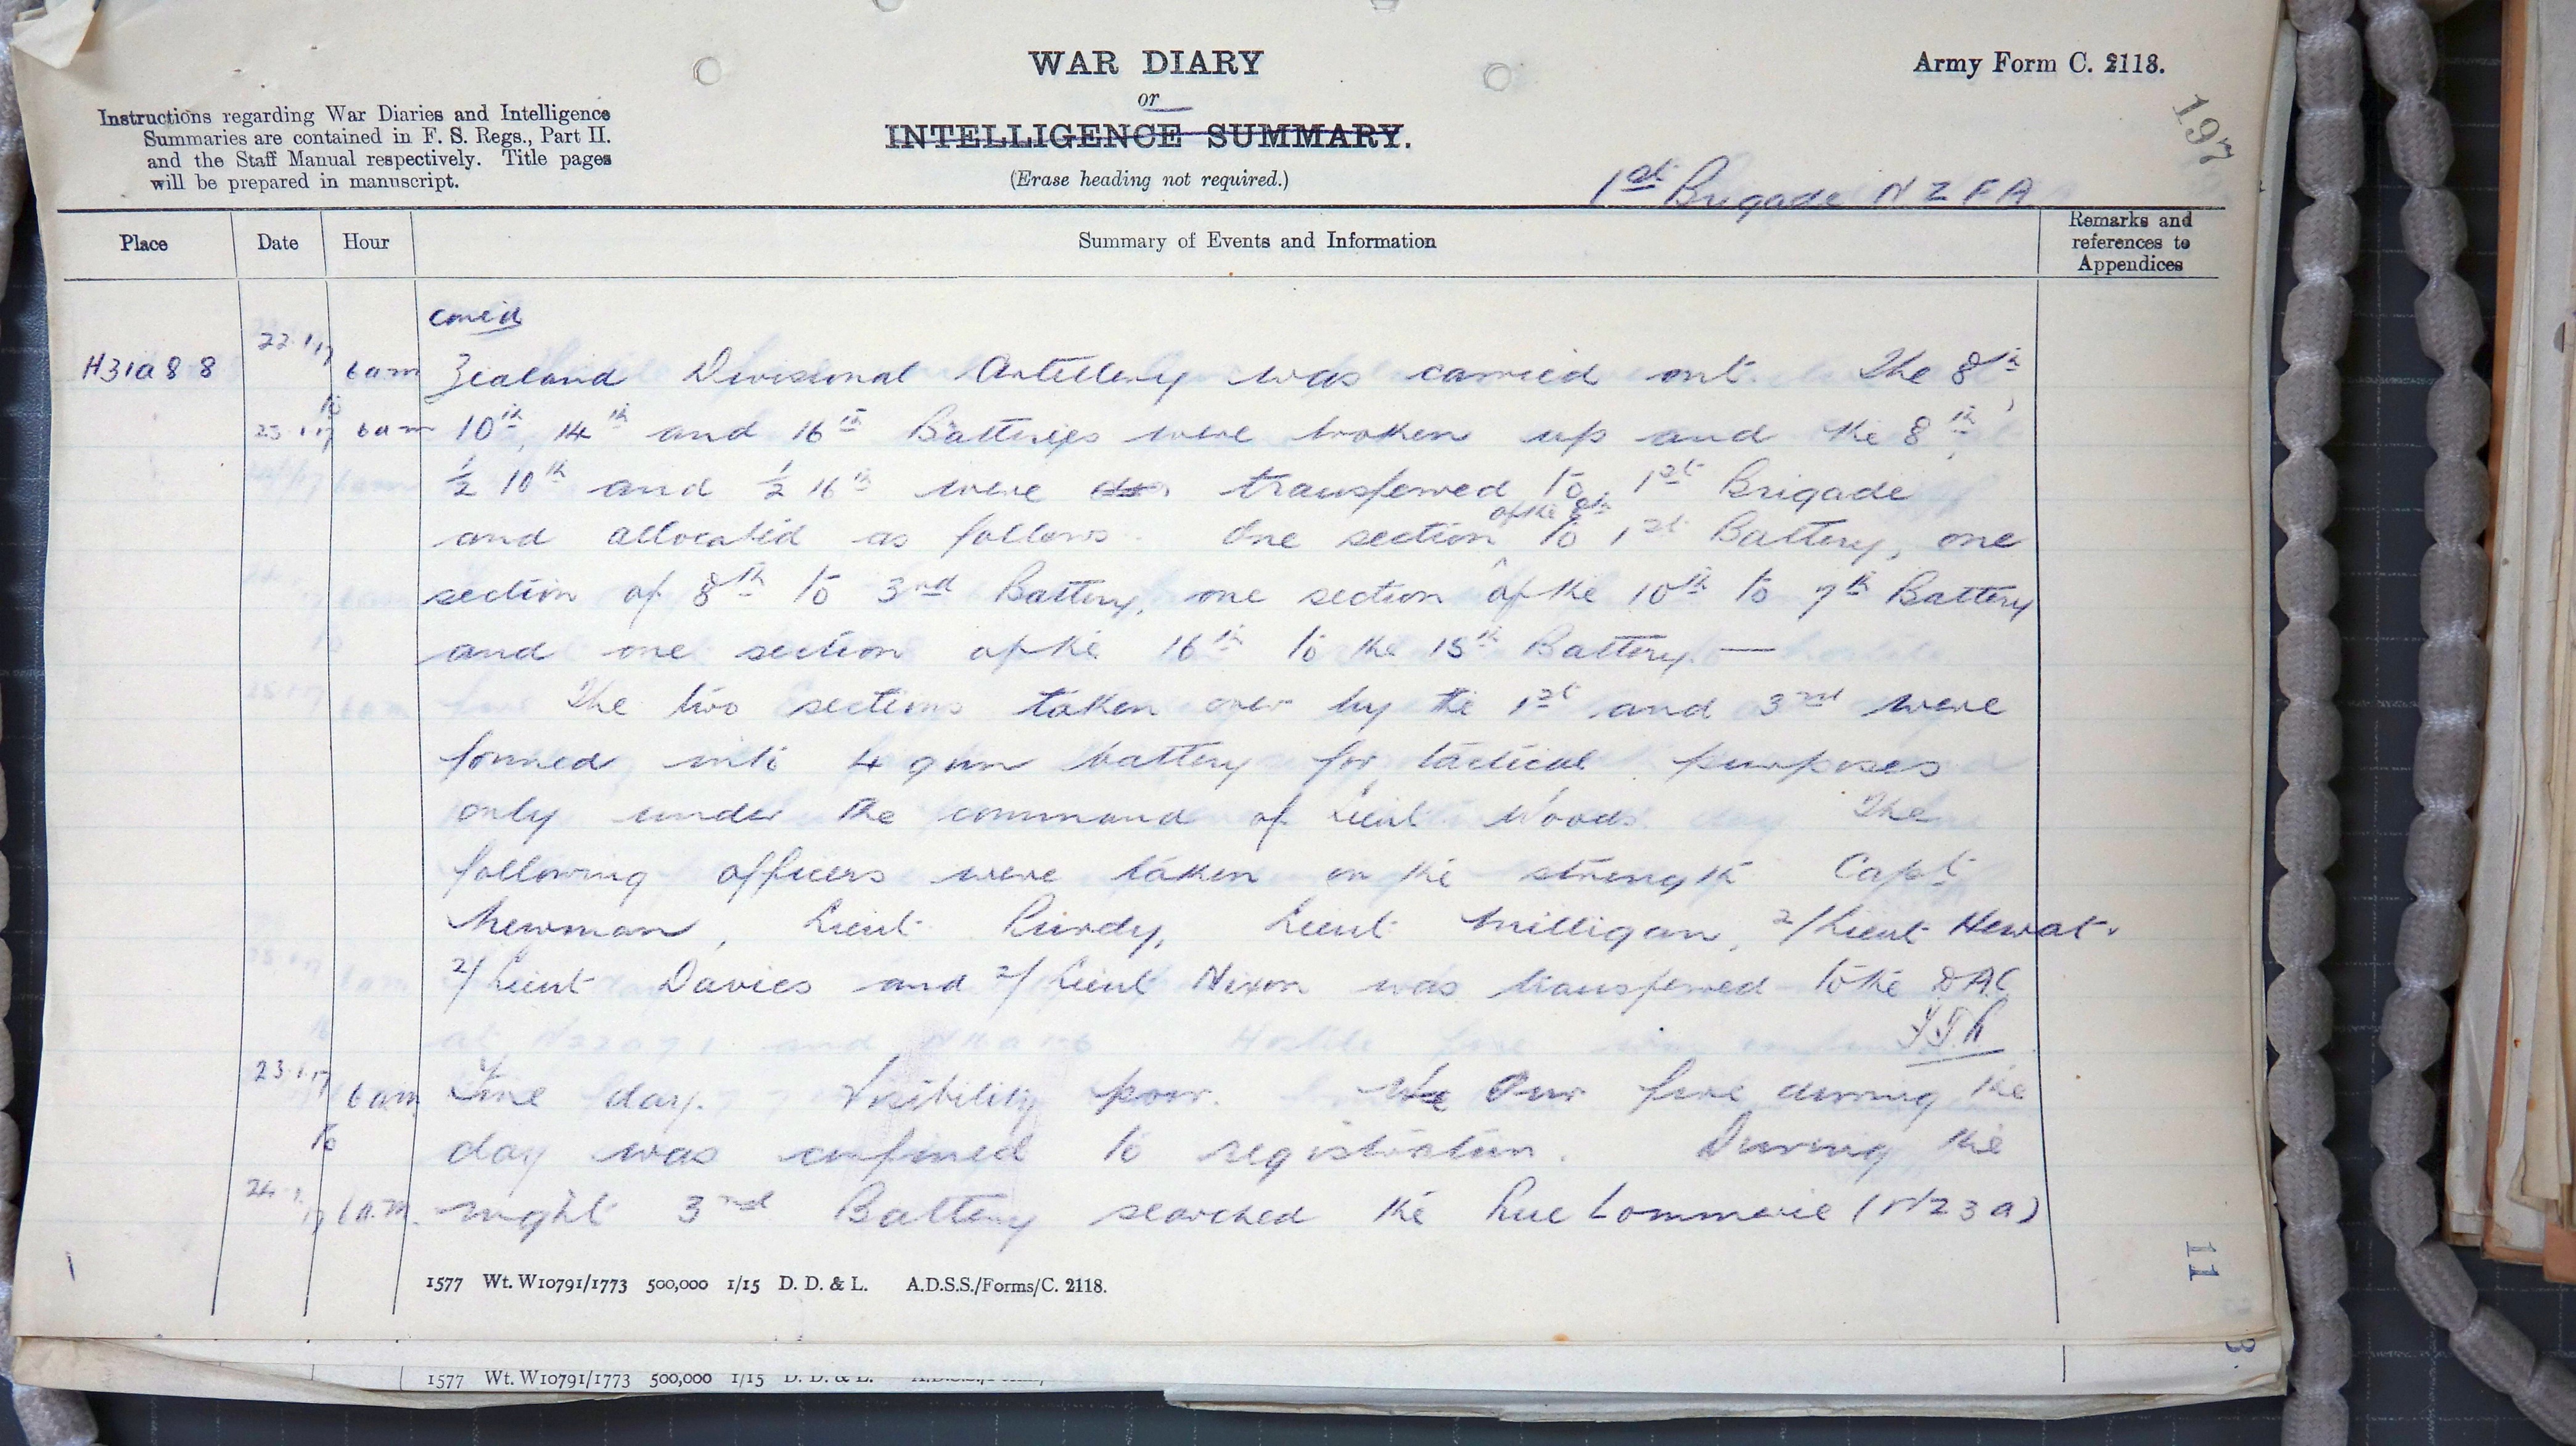 WAR DIARY
or
INTELLIGENCE SUMMARY.
(Erase heading not required.)
Army Form C. 2118.
197
Instructions regarding War Diaries and Intelligence
Summaries are contained in F. S. Regs., Part II.
and the Staff Manual respectively. Title pages
will be prepared in manuscript.
1st Brigade N Z F A
Place Date Hour Summary of Events and Information Remarks and references to Appendices
cont'd
H31a 8 8 22.1.17 6am Zealand Divisional Artillery was carried out. The 8th,
to
23.1.17 6am 10th, 14th and 16th Batteries were broken up and the 8th,
½ 10th and ½ 16th were transferred to 1st Brigade
and allocated as follows. One section of the 8th to 1st Battery, one
section of 8th to 3rd Battery, one section of the 10th to 7th Battery
and one section of the 16th to the 15th Battery. —
The two sections taken over by the 1st and 3rd were
formed into 4 gun battery for tactical purposes
only under the command of Lieut Woods. The
following officers were taken on the strength Capt
Newman, Lieut Purdy, Lieut Milligan, 2/Lieut Hewat.
2/Lieut Davies and 2/Lieut Nixon was transferred to the DAC
23.1.17 6am Fine day. Visibility poor. Our fire during the
to
day was confined to registration. During the
24.1.17 6a.m. night 3rd Battery searched the Rue Lommerie (N23a)
1577 Wt. W10791/1773 500,000 1/15 D. D. & L. A.D.S.S./Forms/C. 2118.
11
1577 Wt. W10791/1773 500,000 1/15 D. D. & L.